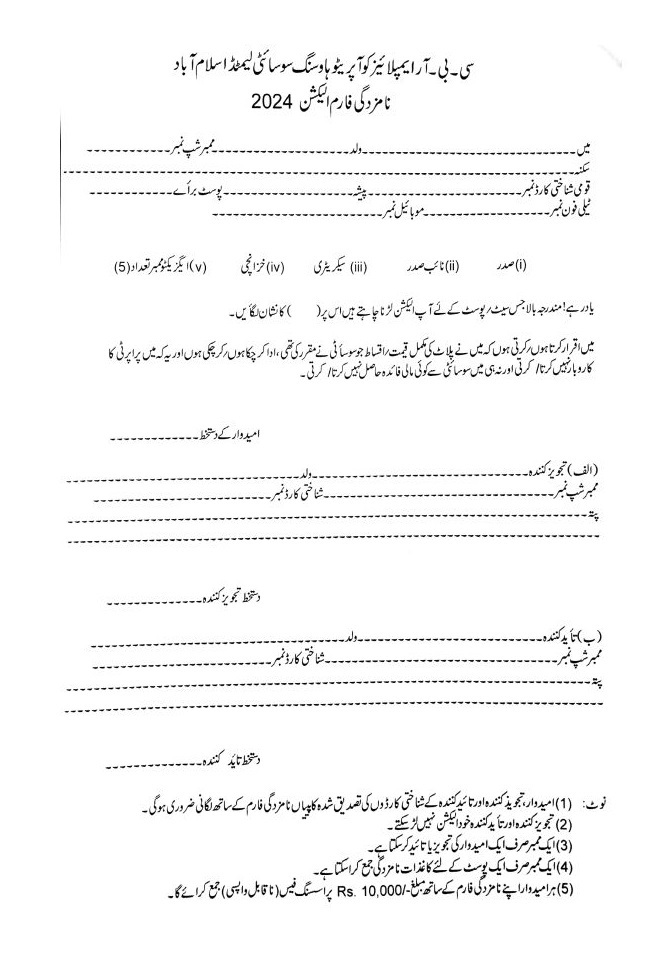 سی۔بی۔آر ایمپلائیز کوآپریٹو ہاوسنگ سوسائٹی لیمٹڈ اسلام آباد
نامزدگی فارم الیکشن 2024
میں ------------------------------ ولد -------------------- ممبر شپ نمبر ------------
سکنہ --------------------------------------------------------------------------
قومی شناختی کارڈ نمبر -------------------- پیشہ -------------------- پوسٹ برأے ------------
ٹیلی فون نمبر -------------------- موبائیل نمبر --------------------------
(i) صدر (ii) نائب صدر (iii) سیکریٹری (iv) خزانچی (v) ایگزیکٹو ممبر تعداد (5)
یاد رہے! مندرجہ بالا جس سیٹ/پوسٹ کے لئے آپ الیکشن لڑنا چاہتے ہیں اس پر ( ) کا نشان لگائیں۔
میں اقرار کرتا ہوں/کرتی ہوں کہ میں نے پلاٹ کی مکمل قیمت/اقساط جو سوسائٹی نے مقرر کی تھی، ادا کر چکا ہوں/کر چکی ہوں اور یہ کہ میں پراپرٹی کا
کاروبار نہیں کرتا/ کرتی اور نہ ہی میں سوسائٹی سے کوئی مالی فائدہ حاصل نہیں کرتا/ کرتی۔
امیدوار کے دستخط -------------
(الف) تجویز کنندہ -------------------- ولد ------------------------------
ممبر شپ نمبر ------------------------------ شناختی کارڈ نمبر --------------------
پتہ --------------------------------------------------------------------------
--------------------------------------------------------------------------
دستخط تجویز کنندہ --------------
(ب) تأید کنندہ -------------------- ولد ------------------------------
ممبر شپ نمبر ------------------------------ شناختی کارڈ نمبر --------------------
پتہ --------------------------------------------------------------------------
--------------------------------------------------------------------------
دستخط تائد کنندہ --------------
نوٹ: (1) امیدوار، تجویذ کنندہ اور تائید کنندہ کے شناختی کارڈوں کی تصدیق شدہ کاپیاں نامزدگی فارم کے ساتھ لگانی ضروری ہوگی۔
(2) تجویز کنندہ اور تأید کنندہ خود الیکشن نہیں لڑ سکتے۔
(3) ایک ممبر صرف ایک امیدوار کی تجویز یا تائید کر سکتا ہے۔
(4) ایک ممبر صرف ایک پوسٹ کے لئے کاغذات نامزدگی جمع کرا سکتا ہے۔
(5) ہر امیدوار اپنے نامزدگی فارم کے ساتھ مبلغ -/Rs. 10,000 پراسسنگ فیس (ناقابل واپسی) جمع کرائے گا۔